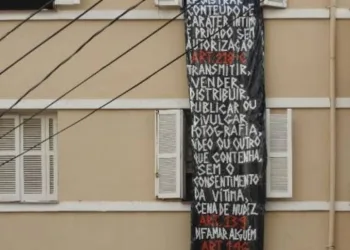 REGISTRAR
CONTEÚDO DE
CARÁTER ÍNTIMO
E PRIVADO SEM
AUTORIZAÇÃO
ART. 218-C
TRANSMITIR,
VENDER,
DISTRIBUIR,
PUBLICAR OU
DIVULGAR
FOTOGRAFIA,
VÍDEO OU OUTRO
QUE CONTENHA,
SEM O
CONSENTIMENTO
DA VÍTIMA,
CENA DE NUDEZ
ART. 139
DIFAMAR ALGUÉM
ART. 146